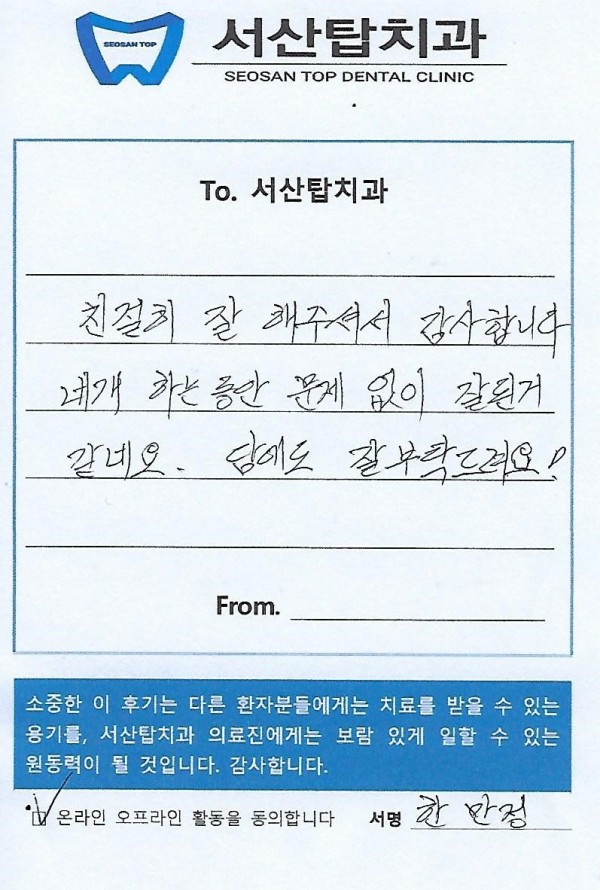 SEOSAN TOP
서산탑치과
SEOSAN TOP DENTAL CLINIC
To. 서산탑치과
친절히 잘 해주셔서 감사합니다
네개 하는동안 문제 없이 잘된거
같네요. 담에도 잘부탁드려요!
From.
소중한 이 후기는 다른 환자분들에게는 치료를 받을 수 있는
용기를, 서산탑치과 의료진에게는 보람 있게 일할 수 있는
원동력이 될 것입니다. 감사합니다.
온라인 오프라인 활동을 동의합니다 서명 한만정